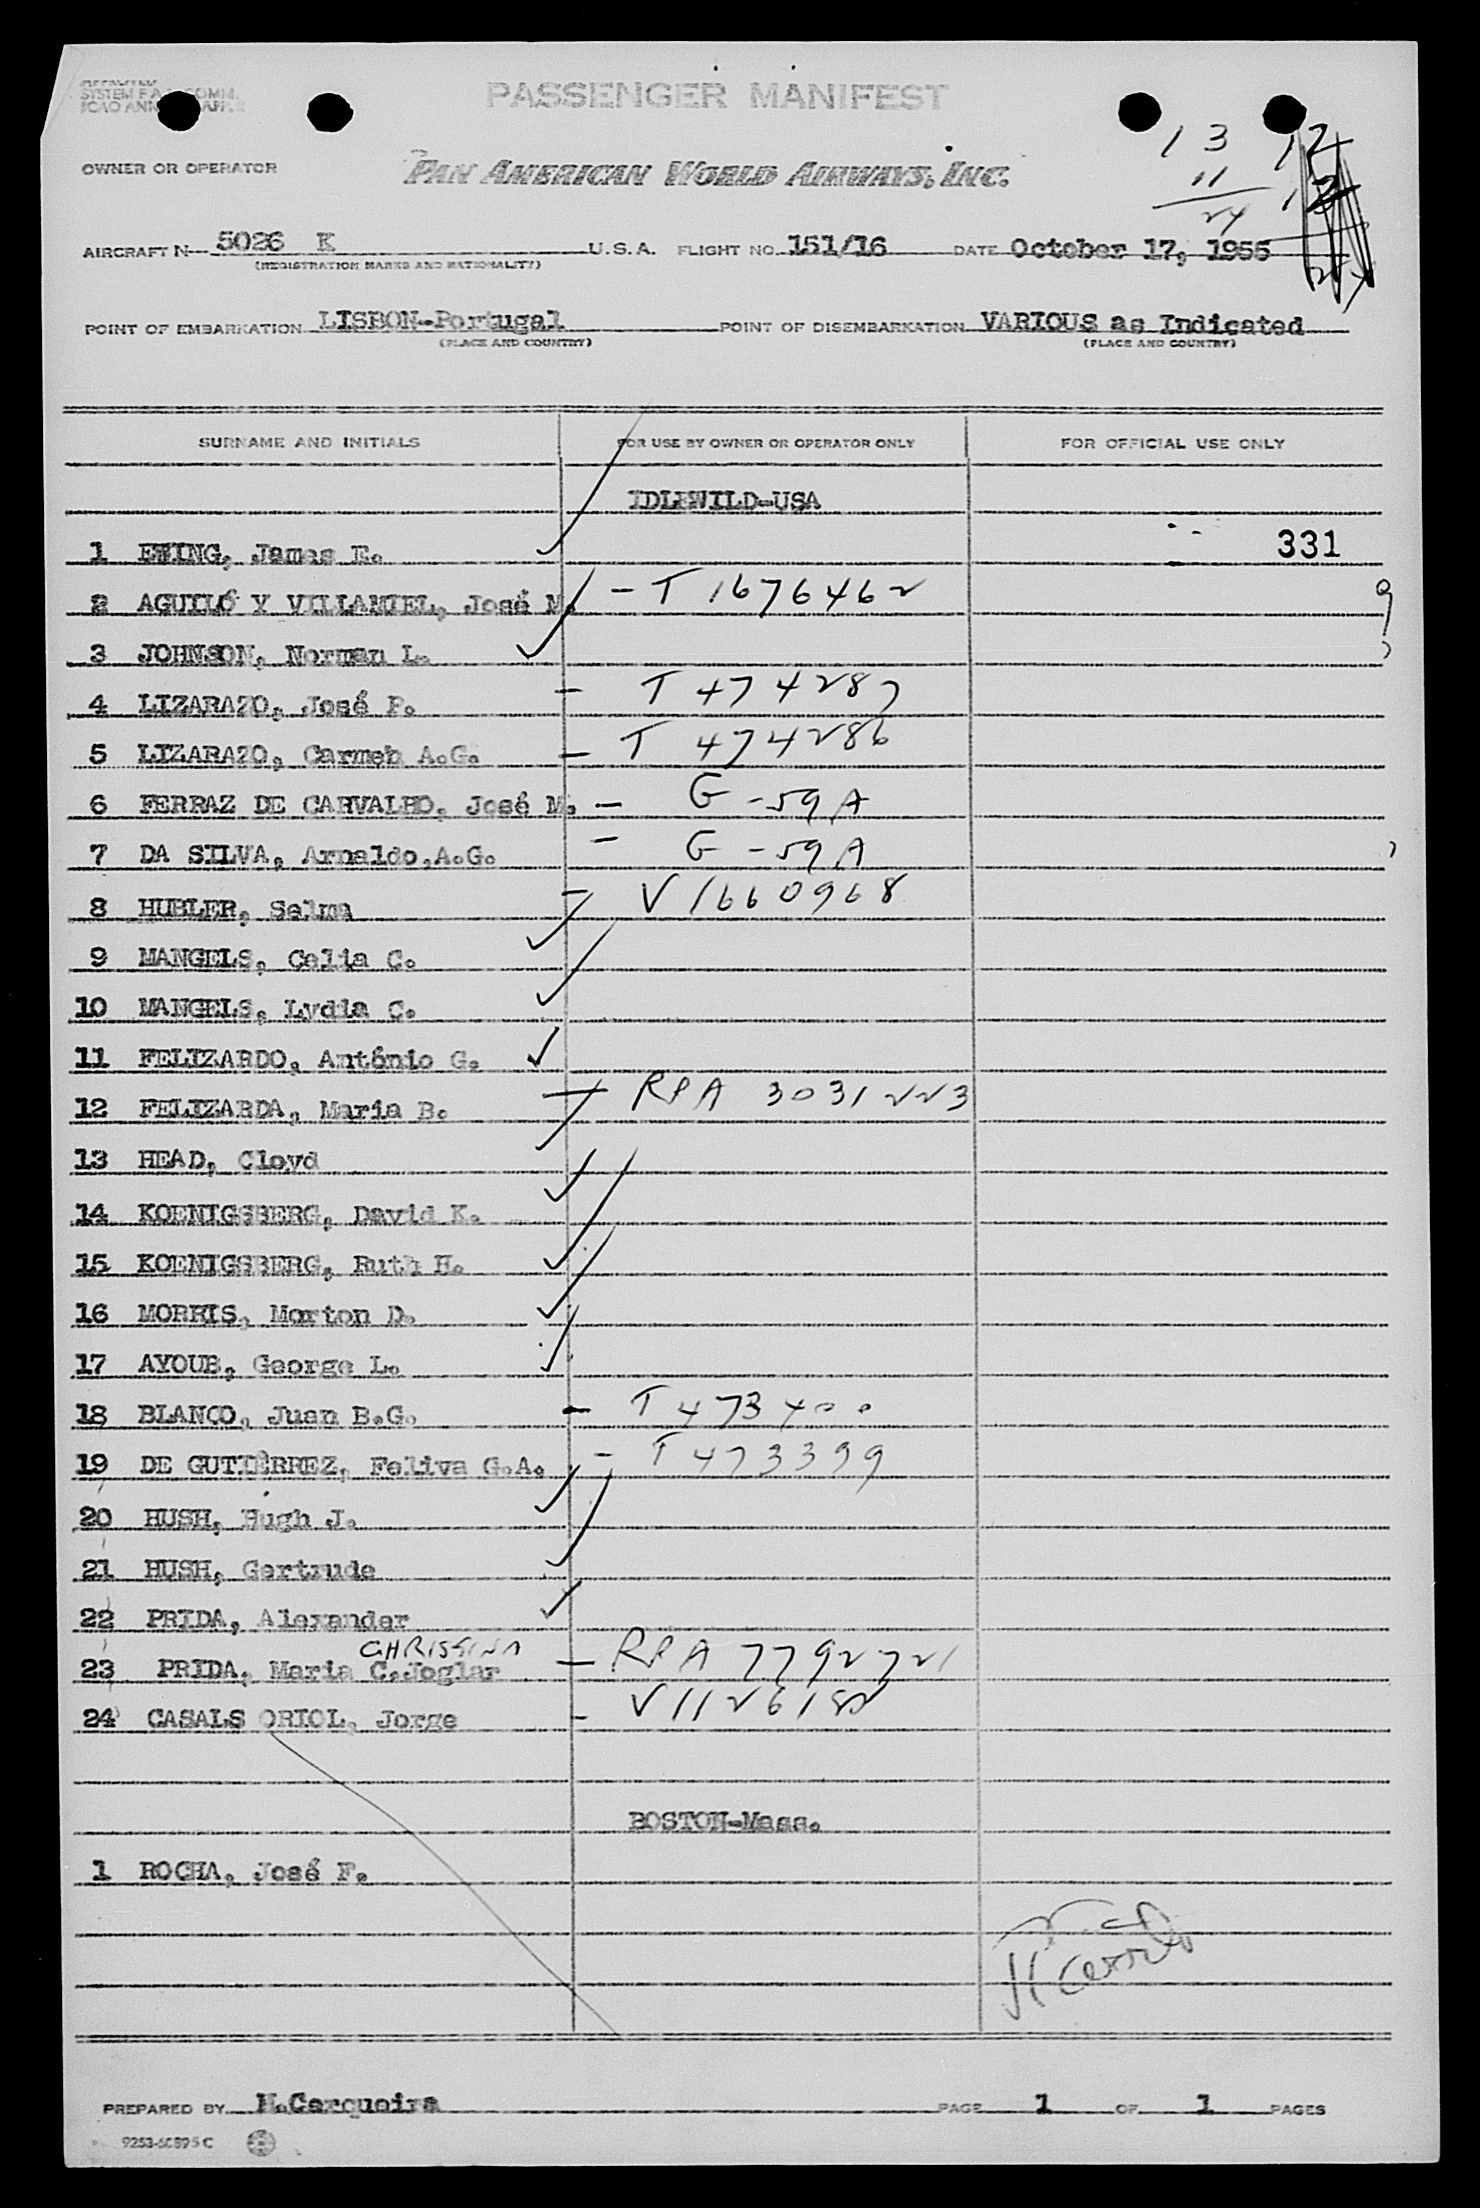 PASSENGER MANIFEST
13 12
11
24
OWNER OR OPERATOR PAN AMERICAN WORLD AIRWAYS, INC.
AIRCRAFT N 5026 K U.S.A. FLIGHT NO. 151/16 DATE October 17, 1955
(REGISTRATION MARKS AND NATIONALITY)
POINT OF EMBARKATION LISBON-Portugal POINT OF DISEMBARKATION VARIOUS as Indicated
(PLACE AND COUNTRY) (PLACE AND COUNTRY)
SURNAME AND INITIALS FOR USE BY OWNER OR OPERATOR ONLY FOR OFFICIAL USE ONLY
IDLEWILD-USA
1 EWING, James E. 331
2 AGUILÓ Y VILLAMIEL, José M. - T 1676462
3 JOHNSON, Norman L.
4 LIZARAZO, José P. - T 474287
5 LIZARAZO, Carmen A.G. - T 474286
6 FERRAZ DE CARVALHO, José M. - G-59A
7 DA SILVA, Arnaldo,A.G. - G-59A
8 HUBLER, Selma - V1660968
9 MANGELS, Celia C.
10 MANGELS, Lydia C.
11 FELIZARDO, António G.
12 FELIZARDA, Maria B. - RPA 3031223
13 HEAD, Cloyd
14 KOENIGSBERG, David K.
15 KOENIGSBERG, Ruth H.
16 MORRIS, Morton D.
17 AYOUB, George L.
18 BLANCO, Juan B.G. - T473400
19 DE GUTIÉRREZ, Feliva G.A. - T473399
20 HUSH, Hugh J.
21 HUSH, Gertrude
22 PRIDA, Alexander
CHRISTINA
23 PRIDA, Maria C.Joglar - RPA 7792721
24 CASALS ORIOL, Jorge - V112618
BOSTON-Mass.
1 ROCHA, José F.
PREPARED BY H.Cerqueira PAGE 1 OF 1 PAGES